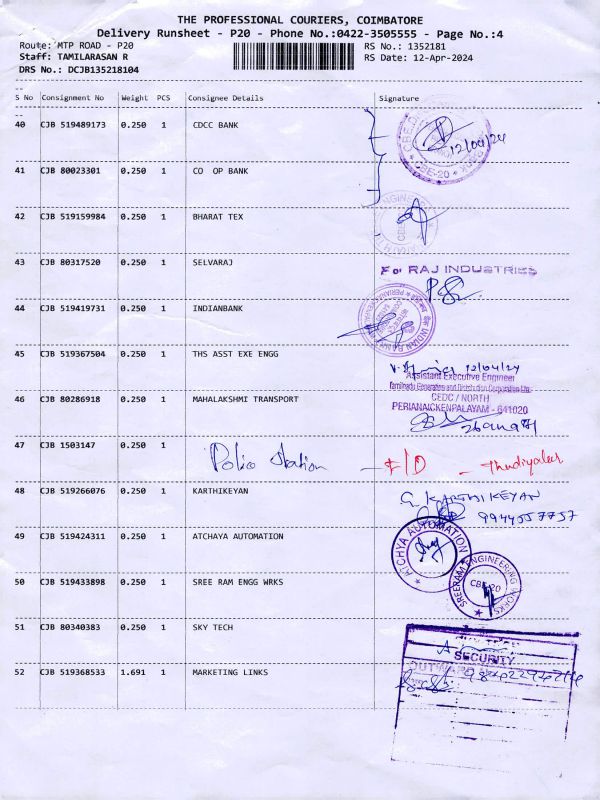 THE PROFESSIONAL COURIERS, COIMBATORE
Delivery Runsheet - P20 - Phone No.:0422-3505555 - Page No.:4
Route: MTP ROAD - P20
RS No.: 1352181
Staff: TAMILARASAN R
RS Date: 12-Apr-2024
DRS No.: DCJB135218104
S No Consignment No Weight PCS Consignee Details Signature
40 CJB 519489173 0.250 1 CDCC BANK
12/04/24
CBE-20
41 CJB 80023301 0.250 1 CO OP BANK
42 CJB 519159984 0.250 1 BHARAT TEX
43 CJB 80317520 0.250 1 SELVARAJ
For RAJ INDUSTRIES
44 CJB 519419731 0.250 1 INDIANBANK
INDIAN BANK
45 CJB 519367504 0.250 1 THS ASST EXE ENGG
12/04/24
Assistant Executive Engineer
Tamilnadu Generation and Distribution Corporation Ltd.
46 CJB 80286918 0.250 1 MAHALAKSHMI TRANSPORT
CEDC / NORTH
PERIANAICKENPALAYAM - 641020
47 CJB 1503147 0.250 1 Police Station - F/D - Thudiyalur
48 CJB 519266076 0.250 1 KARTHIKEYAN
G KARTHIKEYAN
9944557757
49 CJB 519424311 0.250 1 ATCHAYA AUTOMATION
ATCHYA AUTOMATION
50 CJB 519433898 0.250 1 SREE RAM ENGG WRKS
SREERAM ENGINEERING WORKS
CBE-20
51 CJB 80340383 0.250 1 SKY TECH
SECURITY
OUTWARD
52 CJB 519368533 1.691 1 MARKETING LINKS